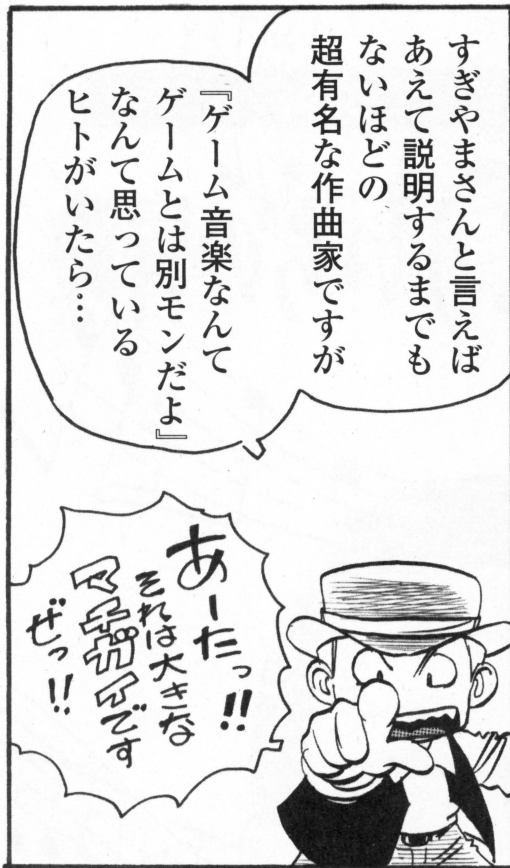 すぎやまさんと言えば
あえて説明するまでも
ないほどの
超有名な作曲家ですが
『ゲーム音楽なんて
ゲームとは別モンだよ』
なんて思っている
ヒトがいたら…
あーたっ!!
それは大きな
マチガイです
ぜっ!!